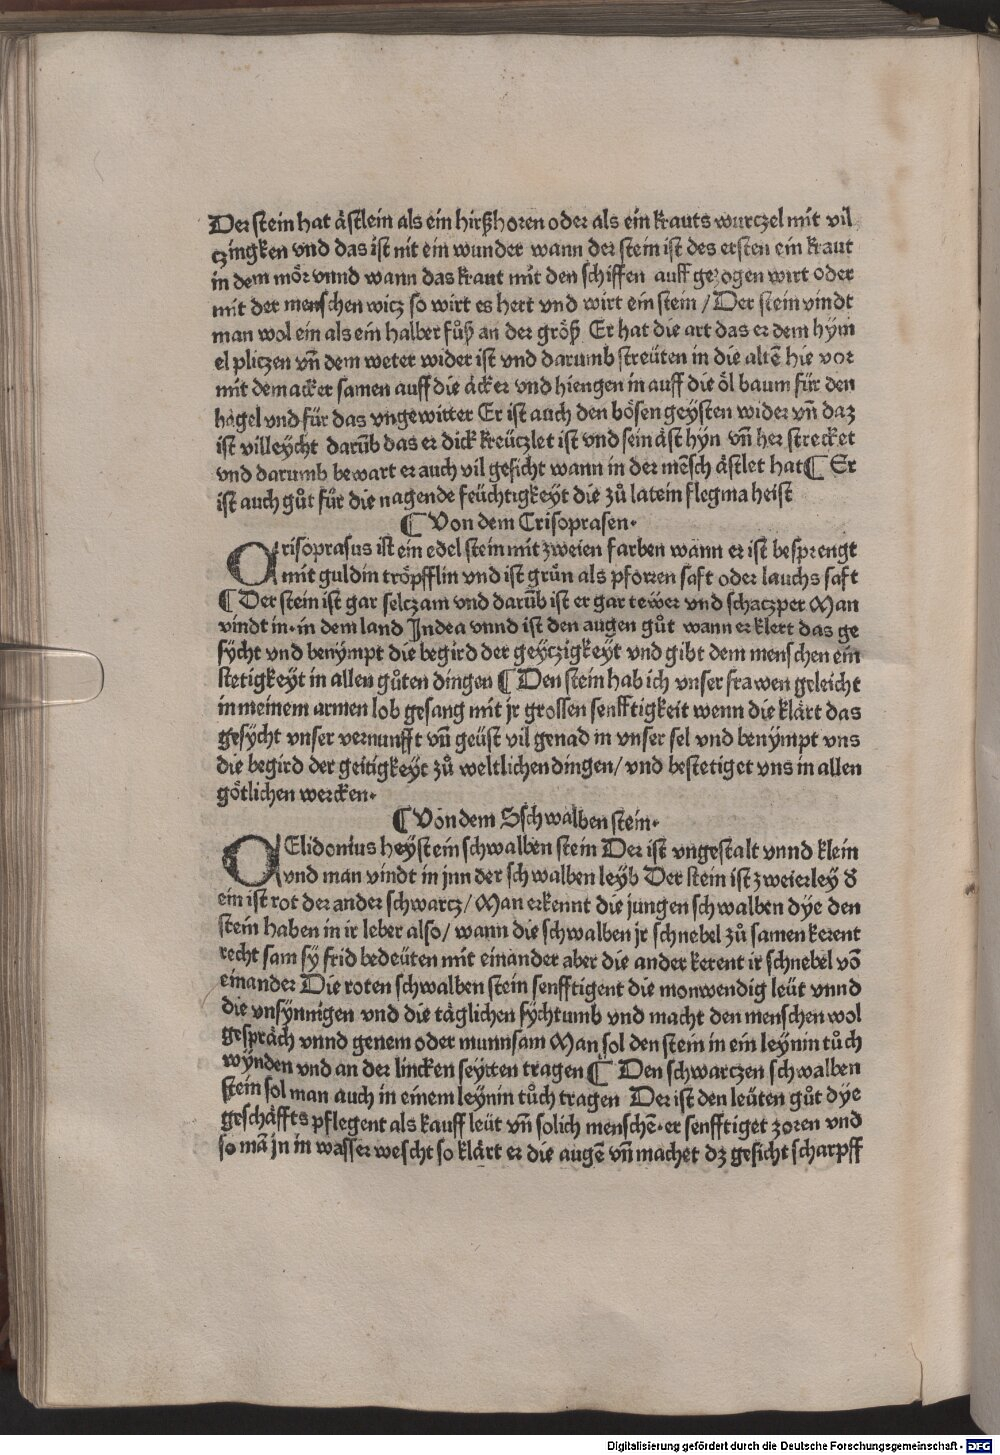 Der stein hat ästlein als ein hirßhoren oder als ein krauts wurczel mit vil
czingken vnd das ist nit ein wunder wann der stein ist des ersten ein kraut
in dem mör vnnd wann das kraut mit den schiffen auff gezogen wirt oder
mit der menschen wicz so wirt es hert vnd wirt ein stein / Der stein vindt
man wol ein als ein halber fůß an der größ Er hat die art das er dem hym
el pliczen vñ dem weter wider ist vnd darumb streüten in die altẽ hie vor
mit dem acker samen auff die äcker vnd hiengen in auff die öl baum für den
hagel vnd für das vngewitter Er ist auch den bösen geysten wider vñ daz
ist villeycht darũb das er dick kreüczlet ist vnd sein äst hyn vñ her strecket
vnd darumb bewart er auch vil gesicht wann in der mẽsch ästlet hat ¶ Er
ist auch gůt für die nagende feüchtigkeyt die zů latein flegma heist
¶ Von dem Crisoprasen.
Crisoprasus ist ein edel stein mit zweien farben wann er ist besprengt
mit guldin tröpfflin vnd ist grůn als pforren saft oder lauchs saft
¶ Der stein ist gar selczam vnd darũb ist er gar tewer vnd schaczper Man
vindt in. in dem land Indea vnnd ist den augen gůt wann er klert das ge
sycht vnd benympt die begird der geyczigkeyt vnd gibt dem menschen ein
stetigkeyt in allen gůten dingen ¶ Den stein hab ich vnser frawen geleicht
in meinem armen lob gesang mit jr grossen senfftigkeit wenn die klärt das
gesycht vnser vernunfft vñ geüst vil genad in vnser sel vnd benympt vns
die begird der geitigkeyt zů weltlichen dingen / vnd bestetiget vns in allen
götlichen wercken.
¶ Von dem Sschwalben stein.
CElidonius heyst ein schwalben stein Der ist vngestalt vnnd klein
vnd man vindt in jnn der schwalben leyb Der stein ist zweierley d
ein ist rot der ander schwarcz / Man erkennt die jungen schwalben dye den
stein haben in ir leber also / wann die schwalben jr schnebel zů samen kerent
recht sam sy frid bedeüten mit einander aber die ander kerent ir schnebel võ
einander Die roten schwalben stein senfftigent die monwendig leüt vnnd
die vnsynnigen vnd die täglichen sychtumb vnd macht den menschen wol
gespräch vnnd genem oder munnsam Man sol den stein in ein leynin tůch
wynden vnd an der lincken seytten tragen ¶ Den schwarczen schwalben
stein sol man auch in einem leynin tůch tragen Der ist den leüten gůt dye
geschäffts pflegent als kauff leüt vñ solich menschẽ. er senfftiget zoren vnd
so mã jn in wasser wescht so klärt er die augẽ vñ machet dz gesicht scharpff
Digitalisierung gefördert durch die Deutsche Forschungsgemeinschaft - DFG